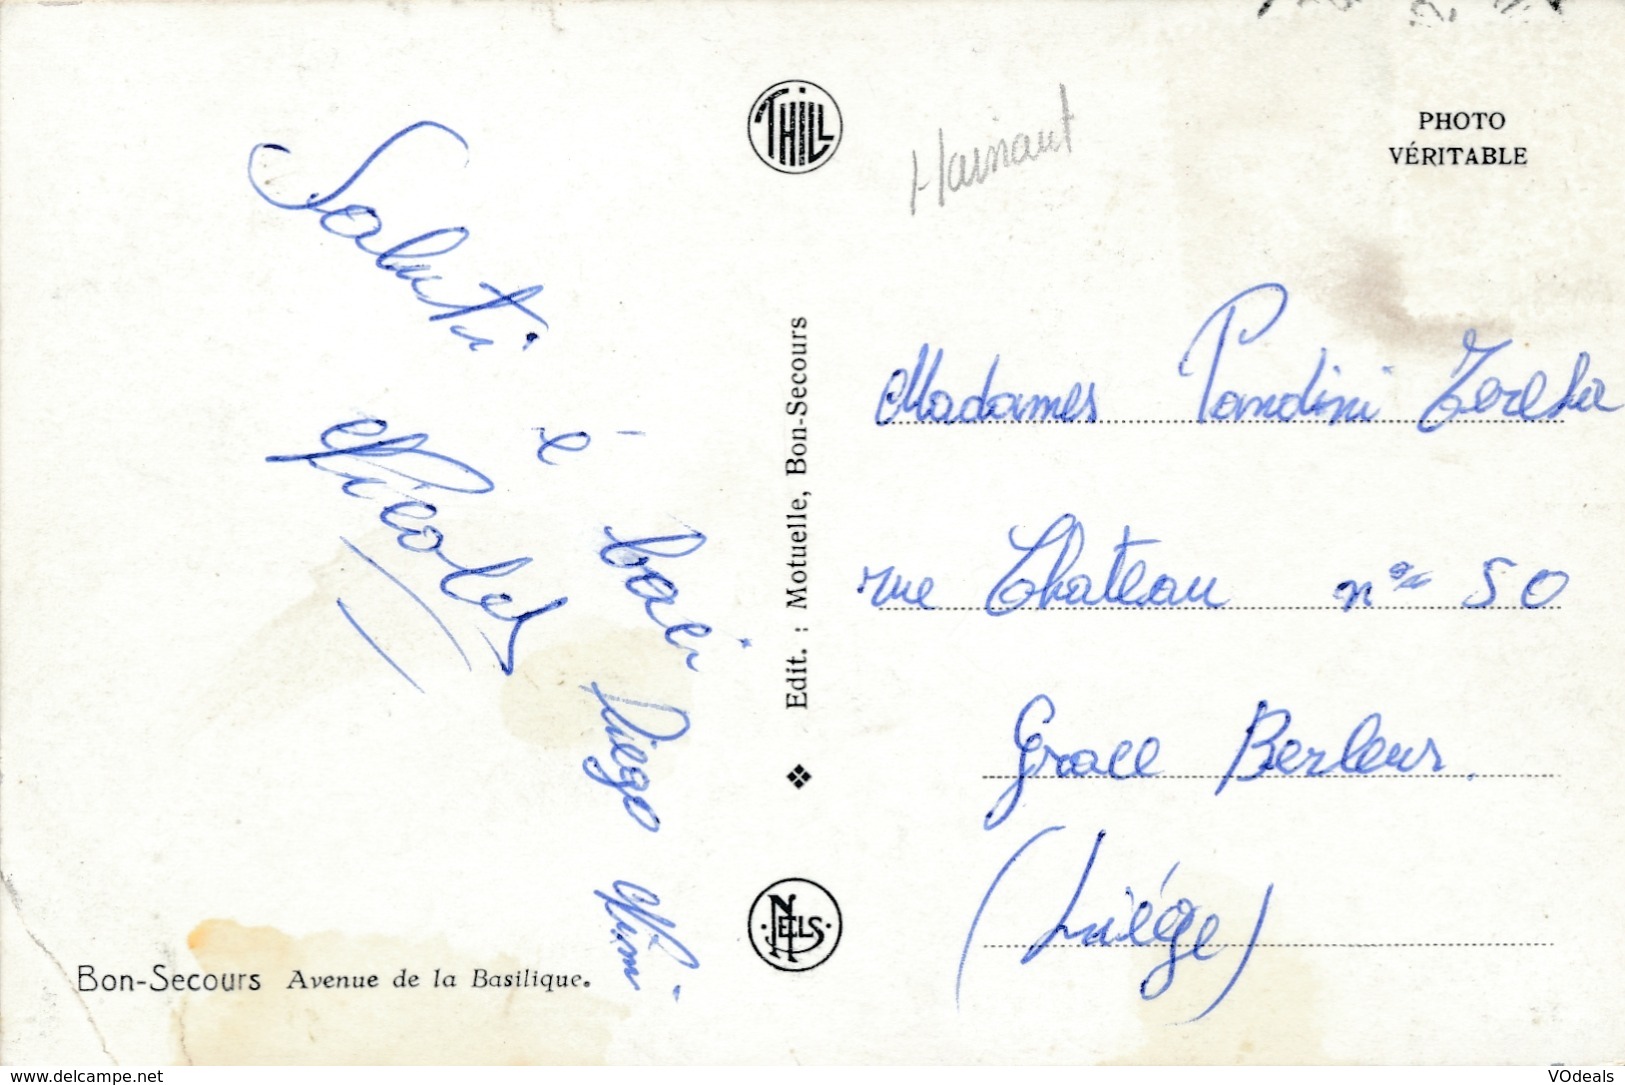 THILL
Hainaut
PHOTO
VÉRITABLE
Saluti
è baci
Diego
Mimi
Nicolas
Edit. : Motuelle, Bon-Secours
Madames Pandini Tereza
rue Chateau n° 50
Grace Berleur.
(Liége)
NELS
Bon-Secours Avenue de la Basilique.
www.delcampe.net
VOdeals